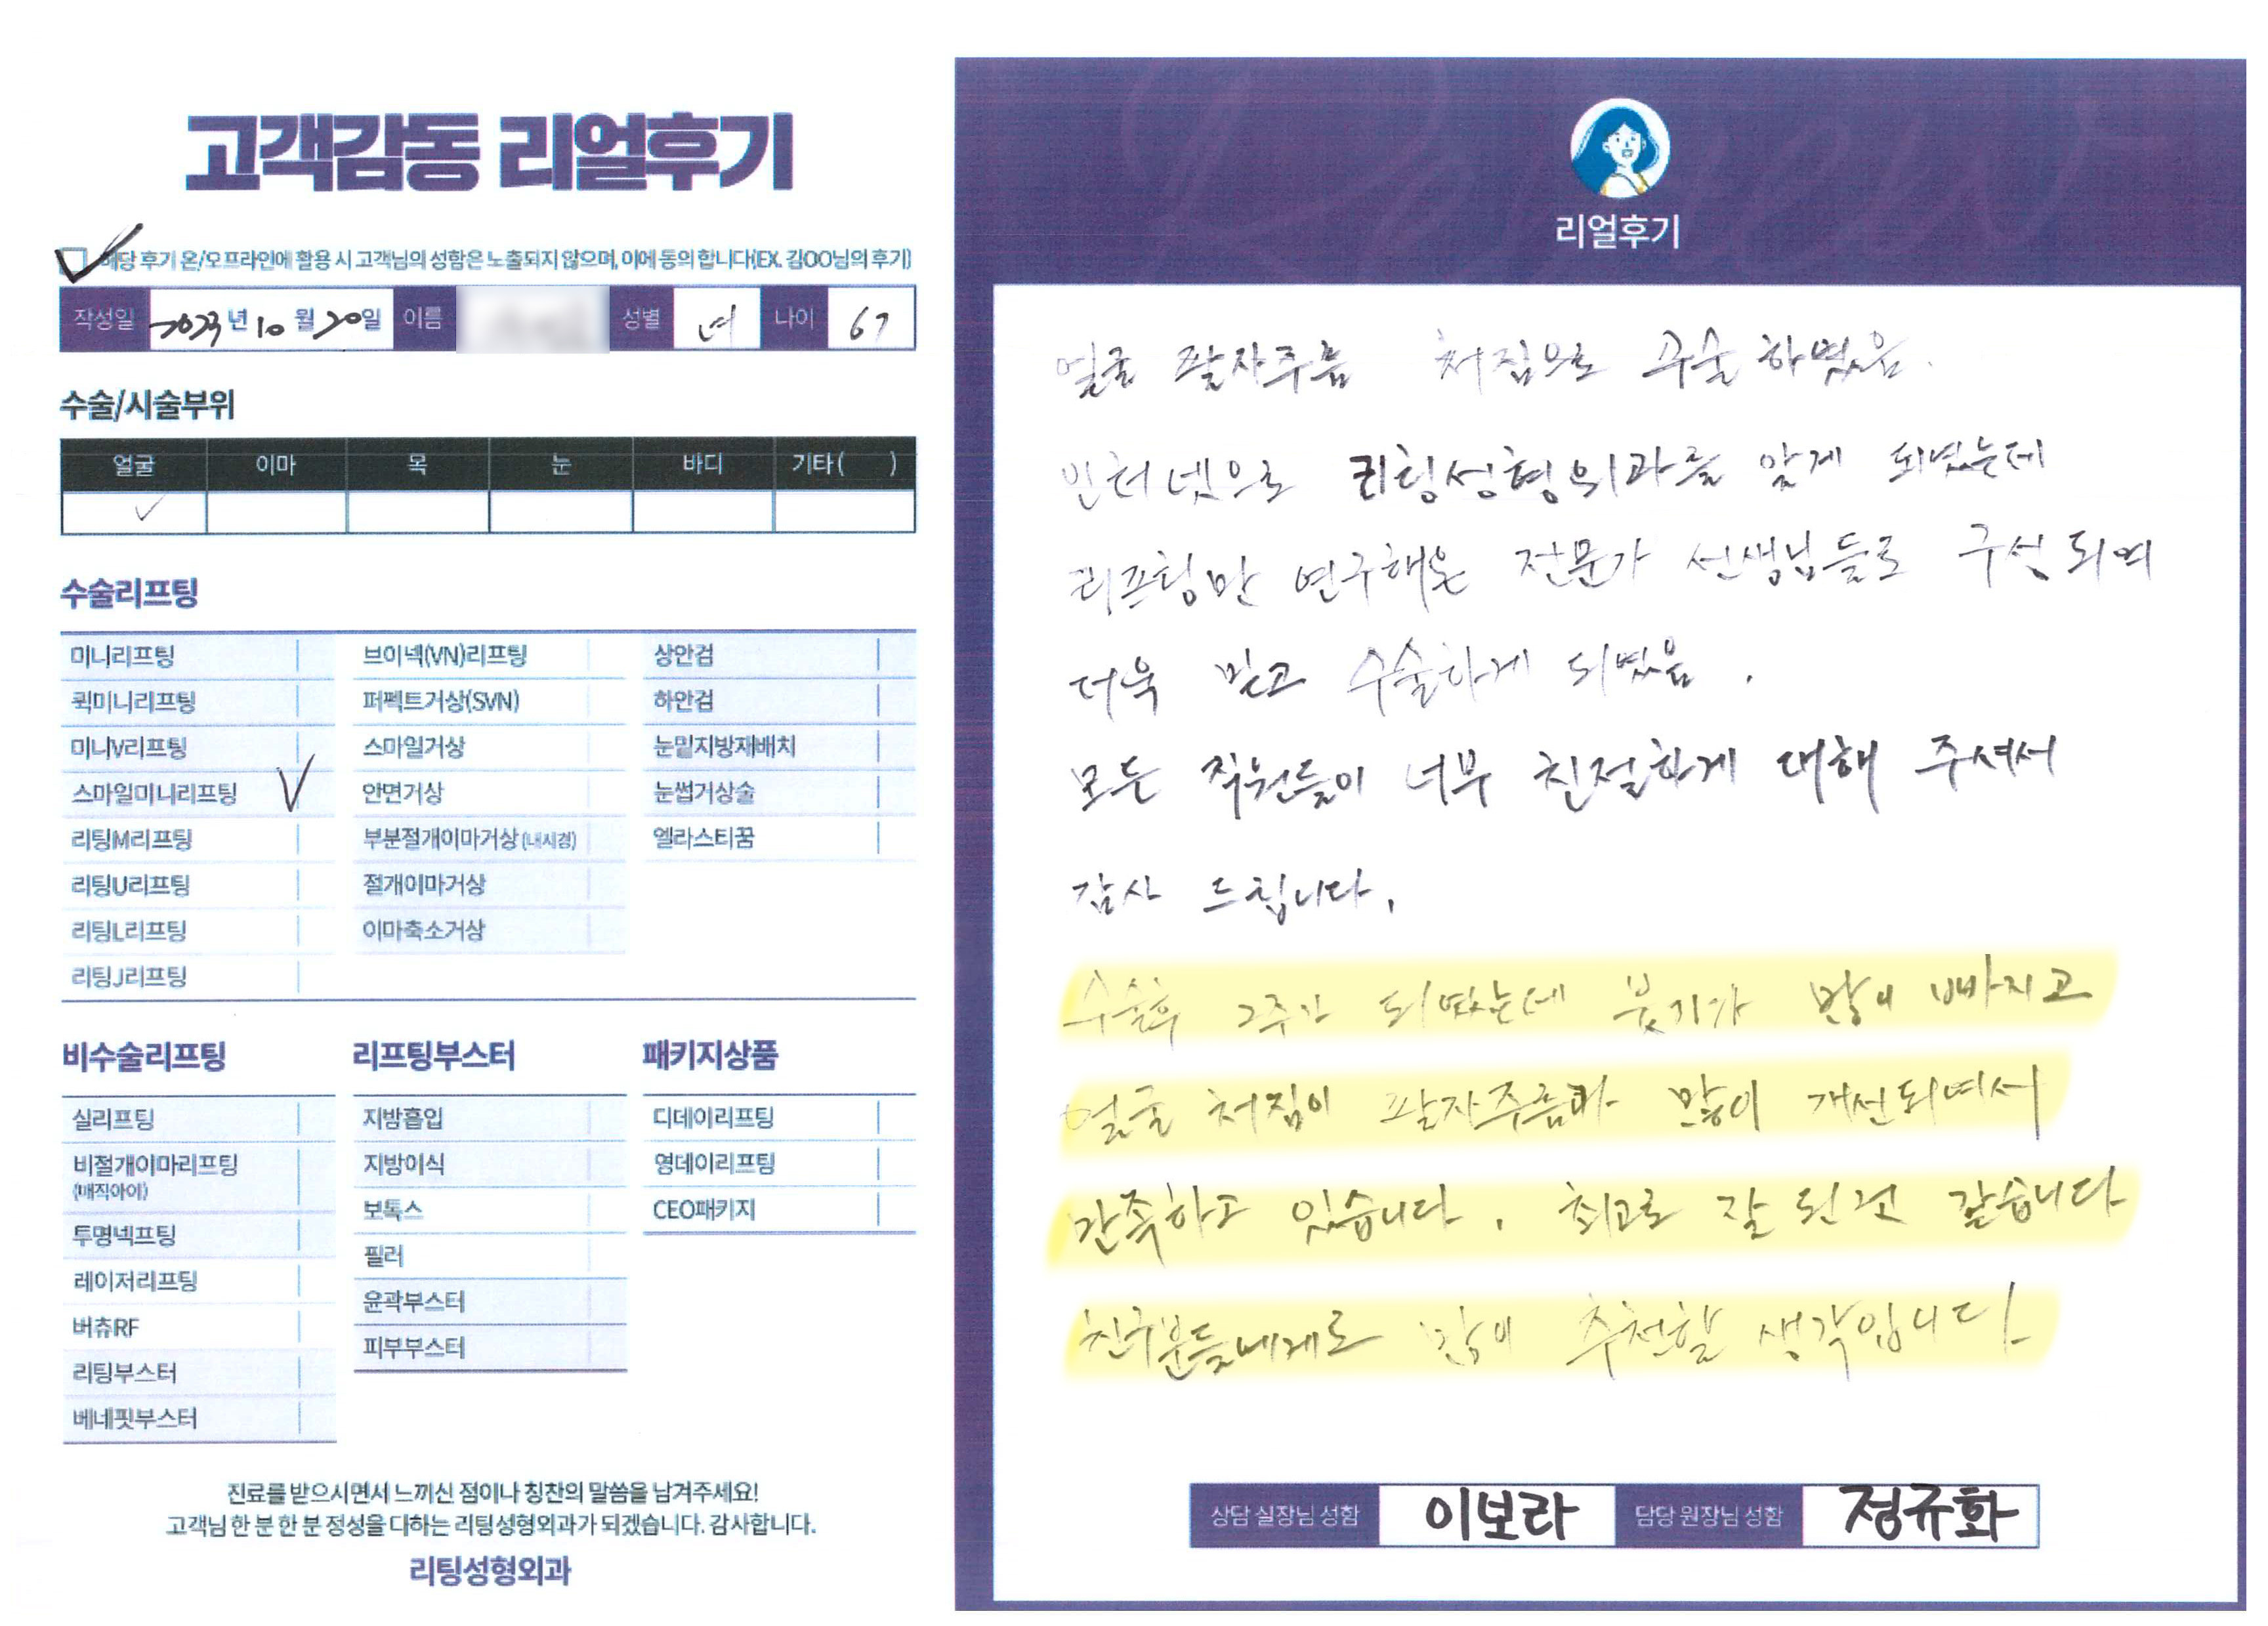 고객감동 리얼후기
해당 후기 온/오프라인에 활용 시 고객님의 성함은 노출되지 않으며, 이에 동의 합니다(EX. 김OO님의 후기)
작성일 2023년 10월 20일 이름 성별 여 나이 67
수술/시술부위
얼굴 이마 목 눈 바디 기타( )
수술리프팅
미니리프팅 브이넥(VN)리프팅 상안검
퀵미니리프팅 퍼펙트거상(SVN) 하안검
미니V리프팅 스마일거상 눈밑지방재배치
스마일미니리프팅 안면거상 눈썹거상술
리팅M리프팅 부분절개이마거상(내시경) 엘라스티꿈
리팅U리프팅 절개이마거상
리팅L리프팅 이마축소거상
리팅J리프팅
비수술리프팅 리프팅부스터 패키지상품
실리프팅 지방흡입 디데이리프팅
비절개이마리프팅 지방이식 영데이리프팅
(매직아이)
보톡스 CEO패키지
투명넥프팅 필러
레이저리프팅 윤곽부스터
버츄RF 피부부스터
리팅부스터
베네핏부스터
진료를 받으시면서 느끼신 점이나 칭찬의 말씀을 남겨주세요!
고객님 한 분 한 분 정성을 다하는 리팅성형외과가 되겠습니다. 감사합니다.
리팅성형외과
리얼후기
얼굴 팔자주름 처짐으로 수술 하였음.
인터넷으로 리팅성형외과를 알게 되였는데
리프팅만 연구해온 전문가 선생님들로 구성되여
더욱 믿고 수술하게 되였음.
모든 직원들이 너무 친절하게 대해 주셔서
감사 드립니다.
수술후 2주가 되였는데 붓기가 많이 빠지고
얼굴 처짐이 팔자주름과 많이 개선되여서
만족하고 있습니다. 최고로 잘 된건 같습니다
친구분들네게로 많이 추천할 생각입니다
상담 실장님 성함 이보라 담당 원장님 성함 정규화